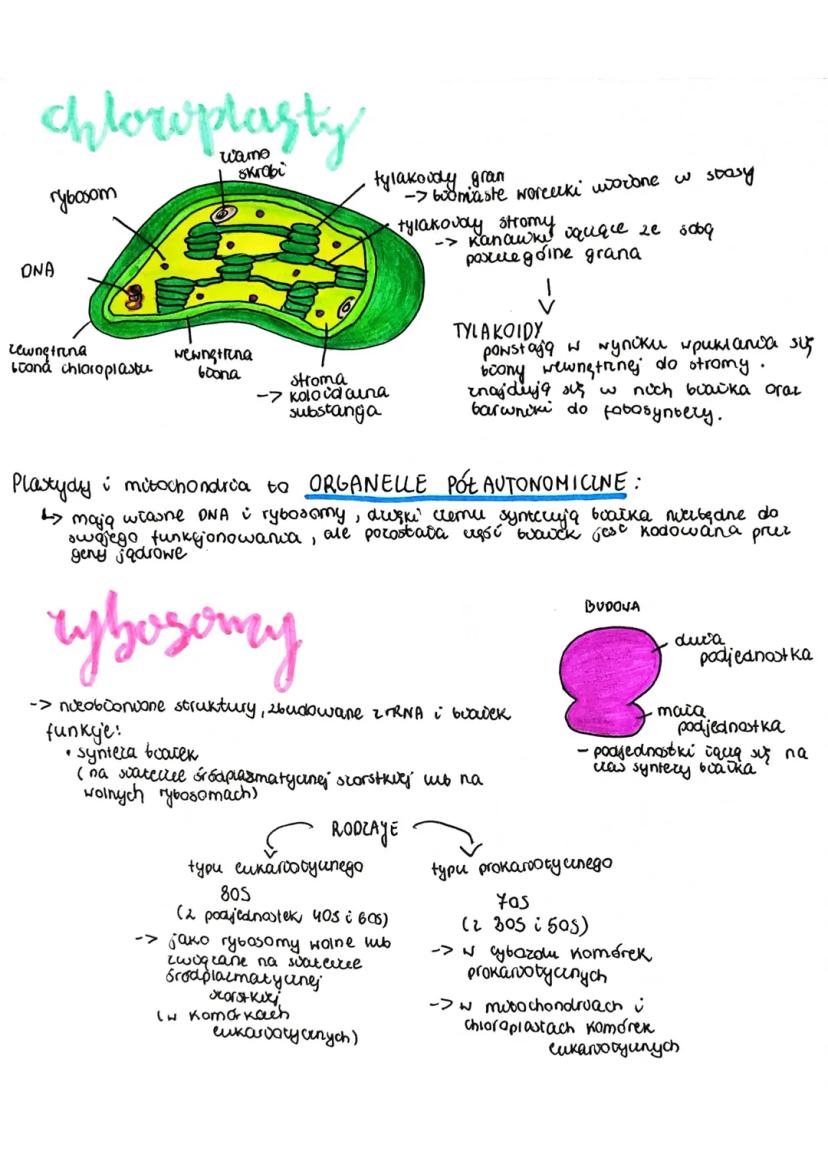 chloroplasty
ziarno
skrobi
rybosom
DNA
zewnętrzna
błona chloroplastu
wewnętrzna
błona
stroma
-> koloidalna
substancja
tylakoidy gran
-> błoniaste woreczki ułożone w stosy
tylakoidy stromy
-> kanaliki łączące ze sobą
poszczególne grana
TYLAKOIDY
powstają w wyniku wpuklania się
błony wewnętrznej do stromy.
znajdują się w nich białka oraz
barwniki do fotosyntezy.
Plastydy i mitochondria to ORGANELLE PÓŁAUTONOMICZNE:
↳ mają własne DNA i rybosomy, dzięki czemu syntezują białka niezbędne do
swojego funkcjonowania, ale pozostała część białek jest kodowana przez
geny jądrowe
rybosomy
-> nieobłonione struktury, zbudowane z rRNA i białek
funkcje:
• synteza białek
(na siateczce śródplazmatycznej szorstkiej lub na
wolnych rybosomach)
BUDOWA
duża
podjednostka
mała
podjednostka
- podjednostki łączą się na
czas syntezy białka
RODZAJE
typu eukariotycznego
80S
(z podjednostek 40S i 60S)
-> jako rybosomy wolne lub
związane na siateczce
śródplazmatycznej
szorstkiej
(w komórkach
eukariotycznych)
typu prokariotycznego
70S
(z 30S i 50S)
-> w cytozolu komórek
prokariotycznych
-> w mitochondriach i
chloroplastach komórek
eukariotycznych